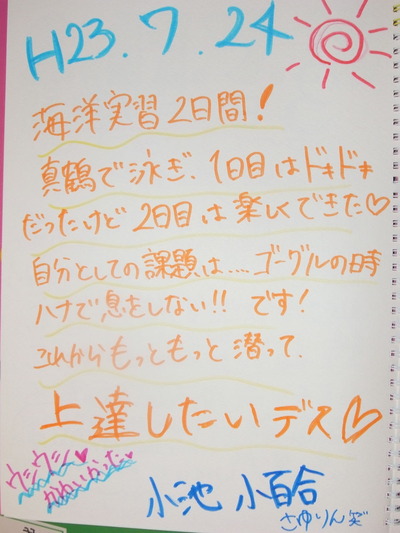 H23.7.24
海洋実習2日間!
真鶴で泳ぎ、1日目はドキドキ
だったけど2日目は楽しくできた♡
自分としての課題は....ゴーグルの時
ハナで息をしない!!です!
これからもっともっと潜って、
上達したいデス♡
ウミウシ♥
かわいかった♥
小池 小百合
さゆりん笑